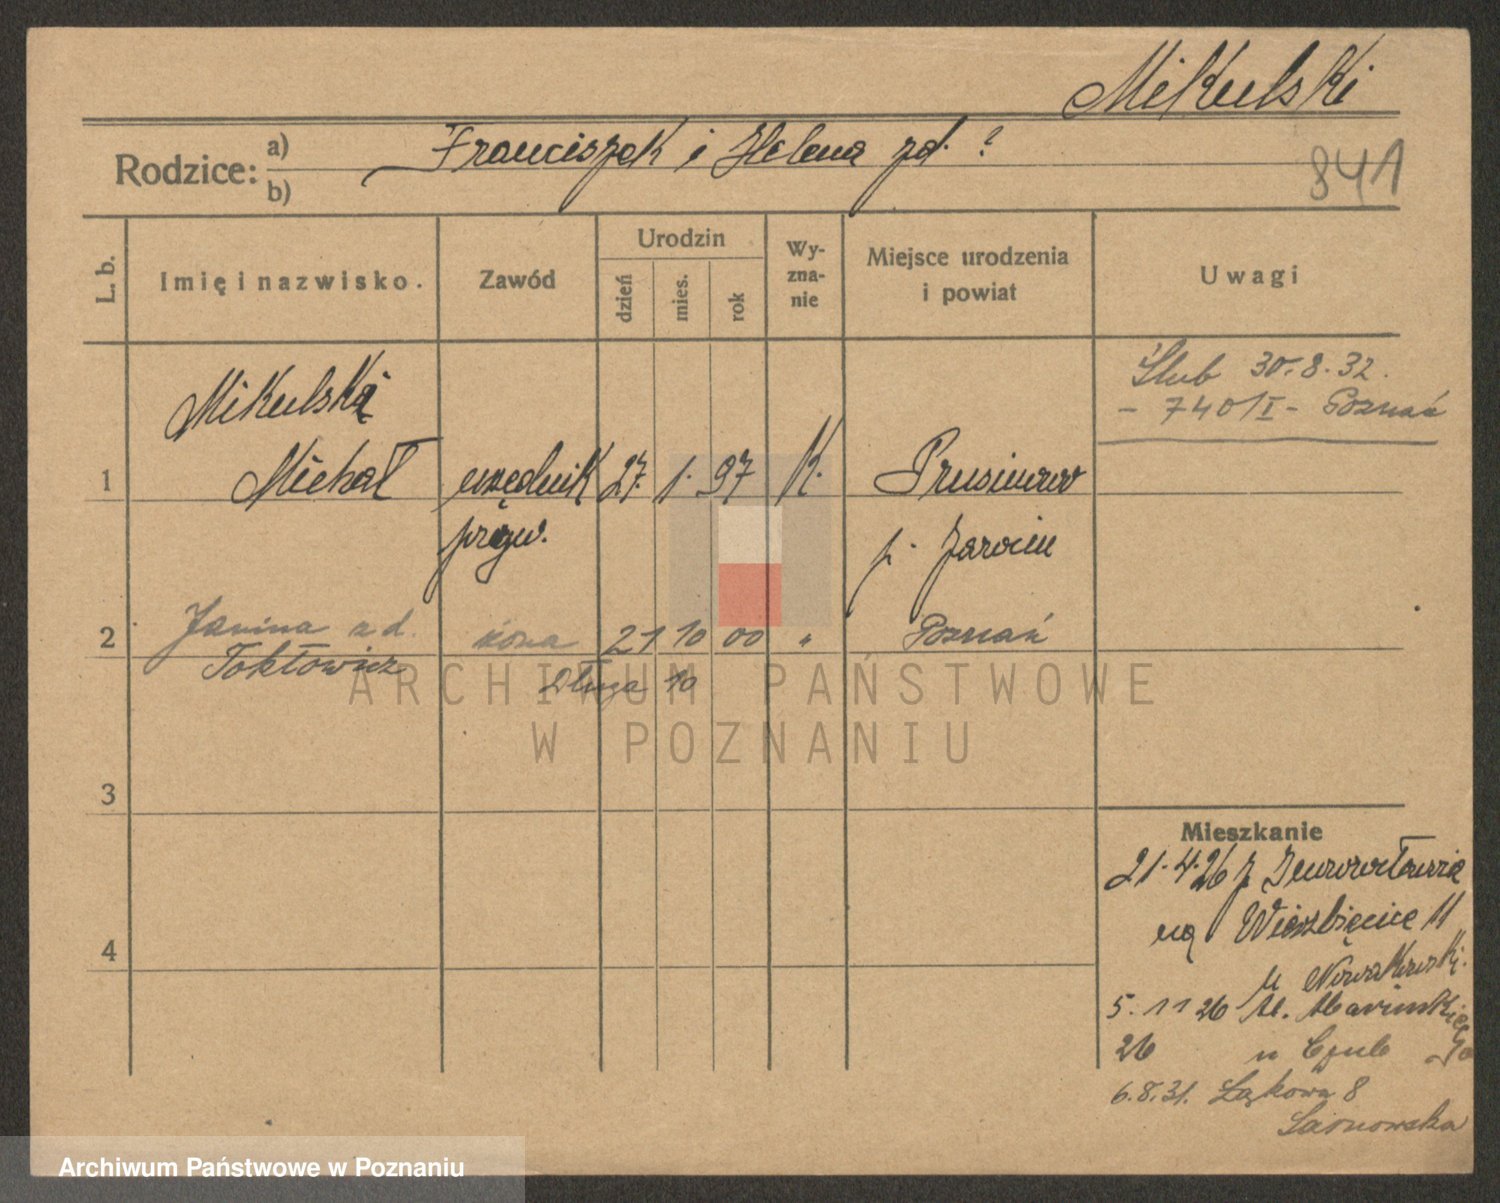 Mikulski
Rodzice: a) Franciszek i Helena zd. ?
b)
841
L. b.
Imię i nazwisko.
Zawód
Urodzin
dzień
mies.
rok
Wy-
zna-
nie
Miejsce urodzenia
i powiat
Uwagi
Ślub 30.8.32.
- 740/I - Poznań
Mikulski
1 Michał urzędnik 27. 1. 97 K. Prusinowo
pryw. p. Jarocin
2 Janina zd. żona 21 10 00 " Poznań
Tokłowicz Długa 10
3
4
Mieszkanie
21.4.26 z Inowrocławia
na Wierzbięcice 11
u Nowakowski.
5.11 26 M.
26 u Czub
6.8.31. Łąkowa 8
Sarnowska
ARCHIWUM PAŃSTWOWE
W POZNANIU
Archiwum Państwowe w Poznaniu